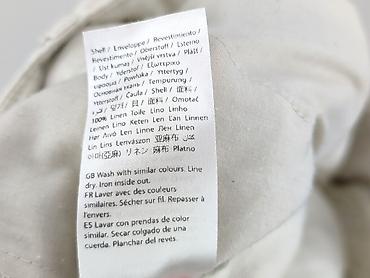 Shell / Enveloppe / Revestimiento /
Revestimento / Oberstoff / Esterno
/ Üst kumaş / Vnějšί vrstva / Plášť /
Body / Yderstof / Εξωτερικό
ύφασμα / Powłoka / Yttertyg /
Основная ткань / Tempurung /
Ytterstoff / Caula / Shell / 面料 /
/ 겉감 / 貝 / 面料 / Omotač
100% Linen Toile Lino Linho
Leinen Lino Keten Len Ľan Linnen
Hør Λινό Len Linne Лен Linen
Lin Lins Lenvászon 亚麻布
아마(亞麻) リネン 麻布 Platno
GB Wash with similar colours. Line
dry. Iron inside out.
FR Laver avec des couleurs
similaires. Sécher sur fil. Repasser à
l'envers.
ES Lavar con prendas de color
similar. Secar colgado de una
cuerda. Planchar del revés.